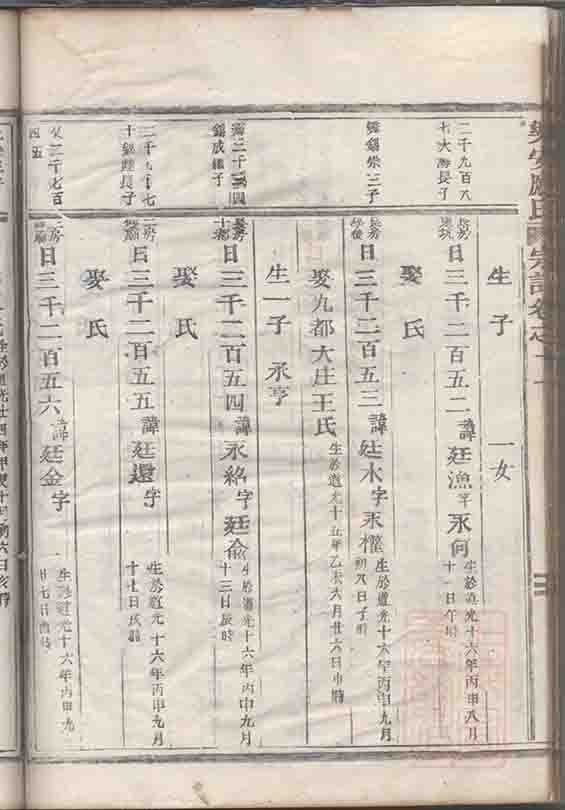 樂安廖氏宗譜卷之二
生子 一女
二千九百八
七大海長子
長房
日三千二百五二諱廷漁字永何 生於道光十六年丙申八月
十一日午時
娶氏
舞錫榮三子
長房
日三千二百五三諱廷水字永權 生於道光十六年丙申九月
初八日子時
娶九都大庄王氏 生於道光十五年乙未六月廿六日申時
生一子 永亨
錫成繼子
長房
日三千二百五四諱永絡字廷俞 生於道光十六年丙申九月
十三日辰時
娶氏
二千九百七
十錫陞長子
二房
日三千二百五五諱廷還字 生於道光十六年丙申九月
十七日戌時
娶氏
四五
二房
日三千二百五六諱廷金字 生於道光十六年丙申九
廿七日酉時